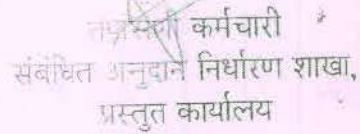 कर्मचारी
संबंधित अनुदान निर्धारण शाखा,
प्रस्तुत कार्यालय